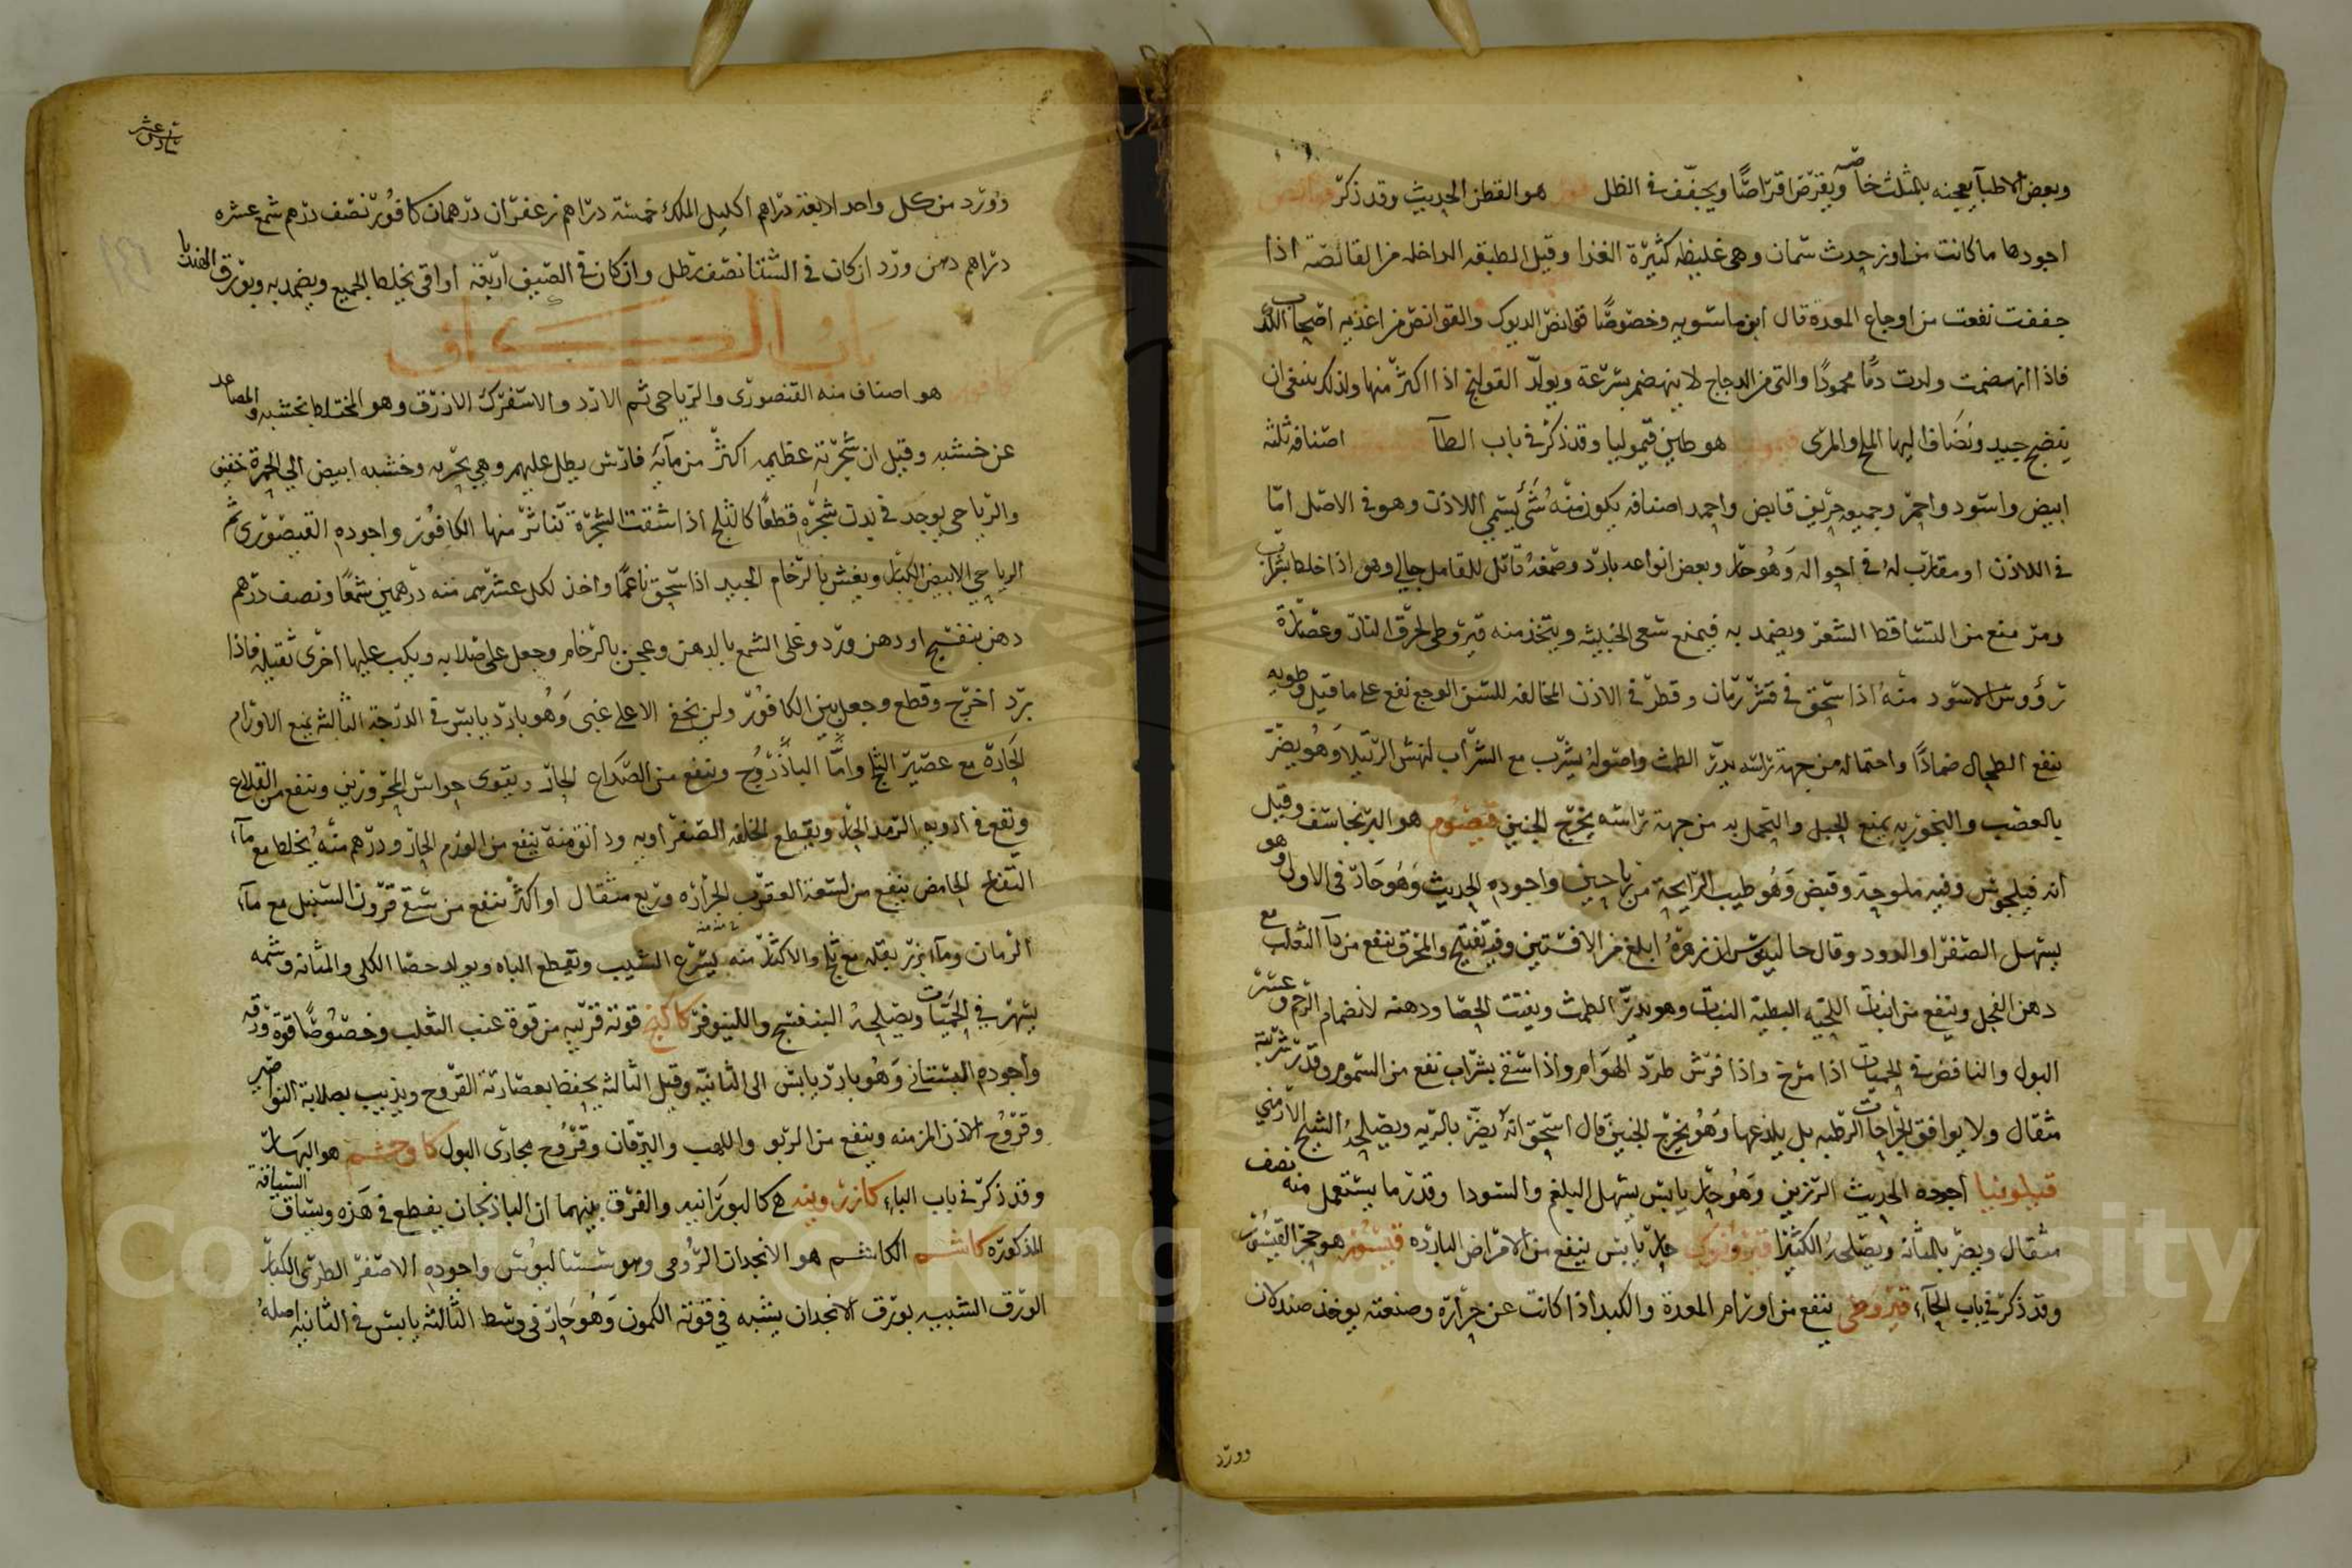 وبعض الاطبا يعجنه بالمثلث خاصه ويقرض اقراصًا ويجفف في الظل هو القطن الحديث وقد ذكر قوانص
اجودها ما كانت من اوز حدث سمان وهي غليظه كثيرة الغذا وقيل الطبقه الداخله من القانصة اذا
جففت نفعت من اوجاع المعدة قال ابن ماسويه وخصوصًا قوانص الديوك والقوانص من اغذيه اصحاب الكد
فاذا انهضمت ولدت دمًا محمودًا والتي من الدجاج لا ينهضم بسرعة ويولد القولنج اذا اكثر منها ولذلك ينبغي ان
ينضج جيد ويضاف اليها الملح والمرى قيموليا هو طين قيموليا وقد ذكر في باب الطآ اصنافه ثلثه
ابيض واسود واحمر وجميعه حريف قابض واحمد اصنافه يكون منه شئ يسمي اللاذن وهو في الاصل اما
في اللاذن او مقارب له في احواله وهو حار وبعض انواعه بارد وصمغه قاتل للقامل جالي وهو اذا خلط بشراب
ومر منع من التساقط الشعر ويضمد به فيمنع سعى الخبيثه ويتخذ منه قيروطي لحرق النار وعصارة
رؤوس الاسود منه اذا سحق في قشر رمان وقطر في الاذن المخالفه للسن الوجع نفع على ما قيل وطريه
ينفع الطحال ضمادًا واحتماله من جهة راسه يدر الطمث واصوله يشرب مع الشراب لنهش الرتيلا وهو يضر
بالعصب والبخور به يمنع الحبل والتحمل به من جهة راسه يخرج الجنين قيصوم هو البرنجاسف وقيل
انه فيلجوش وفيه ملوحة وقبض وهو طيب الرايحة من رياحين واجوده الحديث وهو حار في الاولى وهو
يسهل الصفرا والدود وقال جالينوس ان زهره ابلغ من الافسنتين وفيه تفتيح والمحرق ينفع من دآ الثعلب مع
دهن الفجل وينفع من انبات اللحيه البطية النبات وهو يدر الطمث ويفتت الحصا ودهنه لانضمام الرحم وعسر
البول والنافض في الحميات اذا مرخ واذا فرش طرد الهوام واذا سقي بشراب نفع من السموم وقدر شربته
مثقال ولا يوافق الجراحات الرطبه بل يلذعها وهو يخرج الجنين قال اسحق انه يضر بالريه ويصلحه الشيح الارمني
قيلوفيا اجوده الحديث الرزين وهو حار يابس يسهل البلغم والسودا وقدر ما يستعمل منه نصف
مثقال ويضر بالمثانه ويصلحه الكثيرا حار يابس ينفع من الامراض البارده قيشور هو حجر القيشور
وقد ذكر في باب الحآء قيروطي ينفع من اورام المعدة والكبد اذا كانت عن حرارة وصنعته يوخذ صندلان
وورد
سادس عشر
وورد من كل واحد اربعة دراهم اكليل الملك خمسة دراهم زعفران درهمان كافور نصف درهم شمع عشره
دراهم دهن ورد ان كان في الشتا نصف رطل وان كان في الصيف اربعة اواقى يخلط الجميع ويضمد به
باب الكاف
كافور هو اصناف منه القنصورى والرياحي ثم الازد والاسفرك الازرق وهو المختلط بخشبه والمصاعد
عن خشبه وقيل ان شجرته عظيمه اكثر من مآية فارس يظل عليهم وهي بحريه وخشبه ابيض الي الحمرة خفيف
والرياحي يوجد في بدن شجره قطعًا كالثلج اذا شقت الشجرة تناثر منها الكافور واجوده القيصورى ثم
الرياحي الابيض الكبار ويغش بالرخام الجيد اذا سحق ناعمًا واخذ لكل عشرهم منه درهمين شمعًا ونصف درهم
دهن بنفسج او دهن ورد وغلى الشمع بالدهن وعجن بالرخام وجعل على صلايه ويكب عليها اخرى ثقيله فاذا
برد اخرج وقطع وجعل بين الكافور ولن يخفي الا على غبى وهو بارد يابس في الدرجة الثالثة يمنع الاورام
الحارة مع عصير البلح واما الباذروج وينفع من الصداع الحار ويقوى حواس المحرورين وينفع من القلاع
ويقع في ادويه الرمد الحار ويقطع الخلفه الصفراويه ودانق منه ينفع من الورم الحار ودرهم منه يخلط مع مآء
التفاح الحامض ينفع من لسعة العقرب الجراره وربع مثقال او اكثر ينفع من سقي قرون السنبل مع مآء
الرمان ومآء بزر بقله مع ثلج والاكثار منه يسرع الشيب ويقطع الباه ويولد حصا الكلى والمثانه وشمه
يسهر في الحميات ويصلحه البنفسج واللينوفر كاكنج قوته قريبه من قوة عنب الثعلب وخصوصًا قوة ورقه
واجوده البستاني وهو بارد يابس الى الثانيه وقيل الثالثه يحفظ بعصارته القروح ويذيب بصلابة النواصير
وقروح الاذن المزمنه وينفع من الربو واللهب واليرقان وقروح مجارى البول كاوجشم هو البهار
وقد ذكر في باب البآء كازروينه هي كالبورانيه والفرق بينهما ان الباذنجان يقطع في هذه ويساق السياقة
المذكوره كاشم الكاشم هو الانجدان الرومى وهو سساليوس واجوده الاصفر الطرى الكبار
الورق الشبيه بورق الانجدان يشبه في قوته الكمون وهو حار في وسط الثالثه يابس في الثانيه اصله